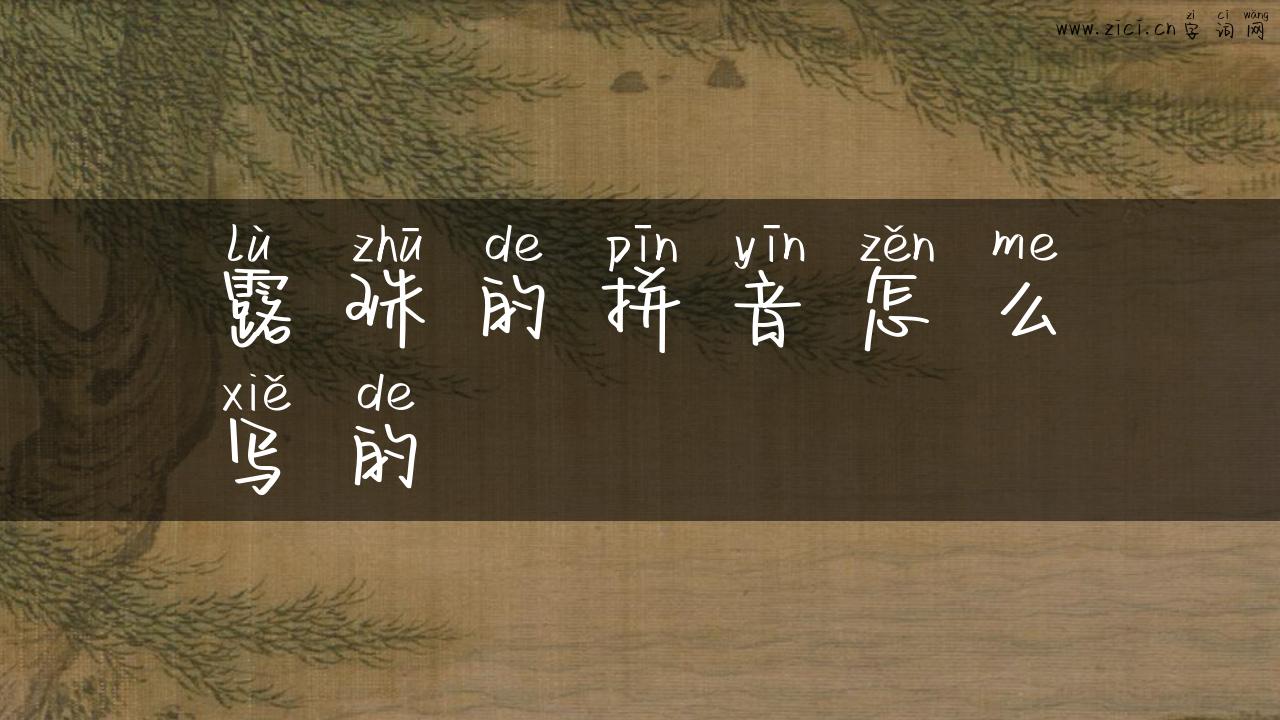 zì cí wǎng
www.zici.cn 字词网
lù zhū de pīn yīn zěn me
露珠的拼音怎么
xiě de
写的